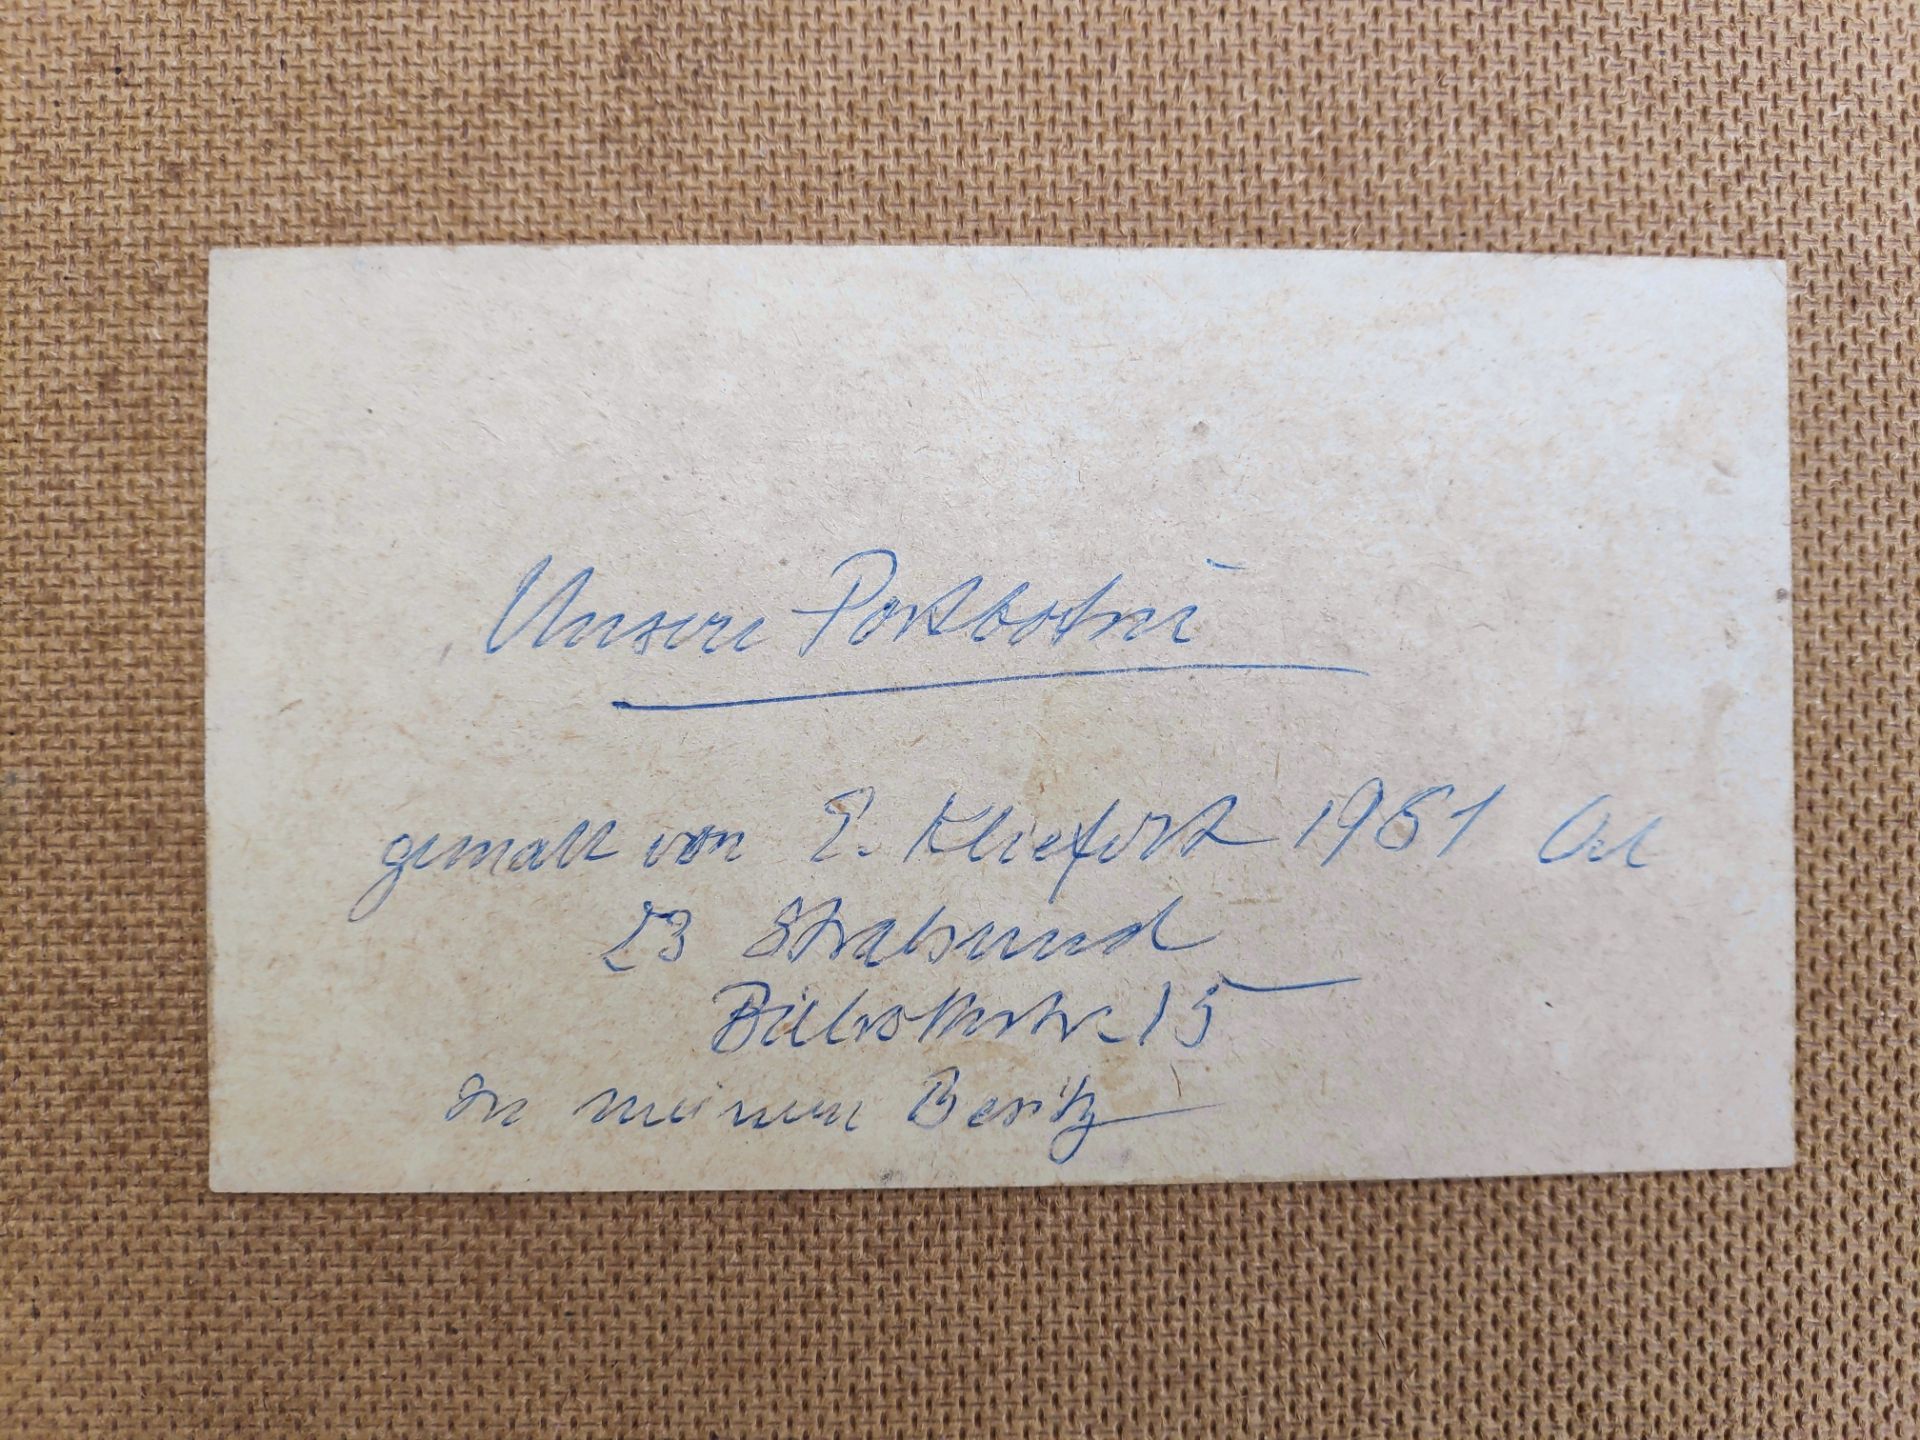 Unsere Postbotin
gemalt von E. Kliefort 1981 Oel
23 Stralsund
15
In meinem Besitz